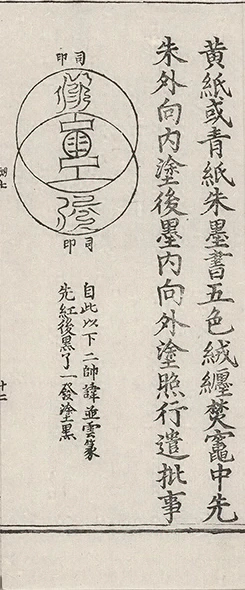 黃紙或青紙朱墨書五色絨纏焚竈中先
朱外向內塗後墨內向外塗照行遣批事
司印
司印
自此以下二帥諱並雲篆
先紅後黑了一發塗黑
十二